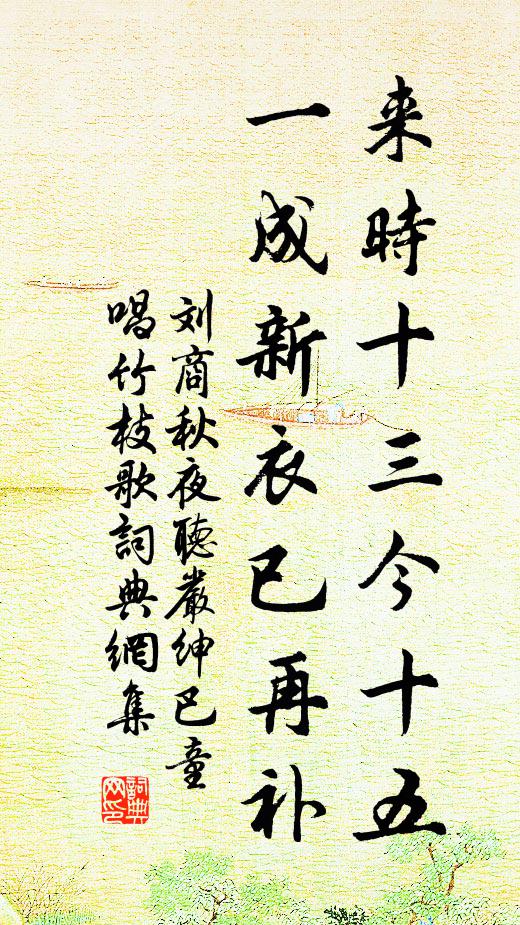 来時十三今十五
一成新衣已再补
刘商秋夜聴嚴紳巴童
唱竹枝歌詞典網集
詞典
网印